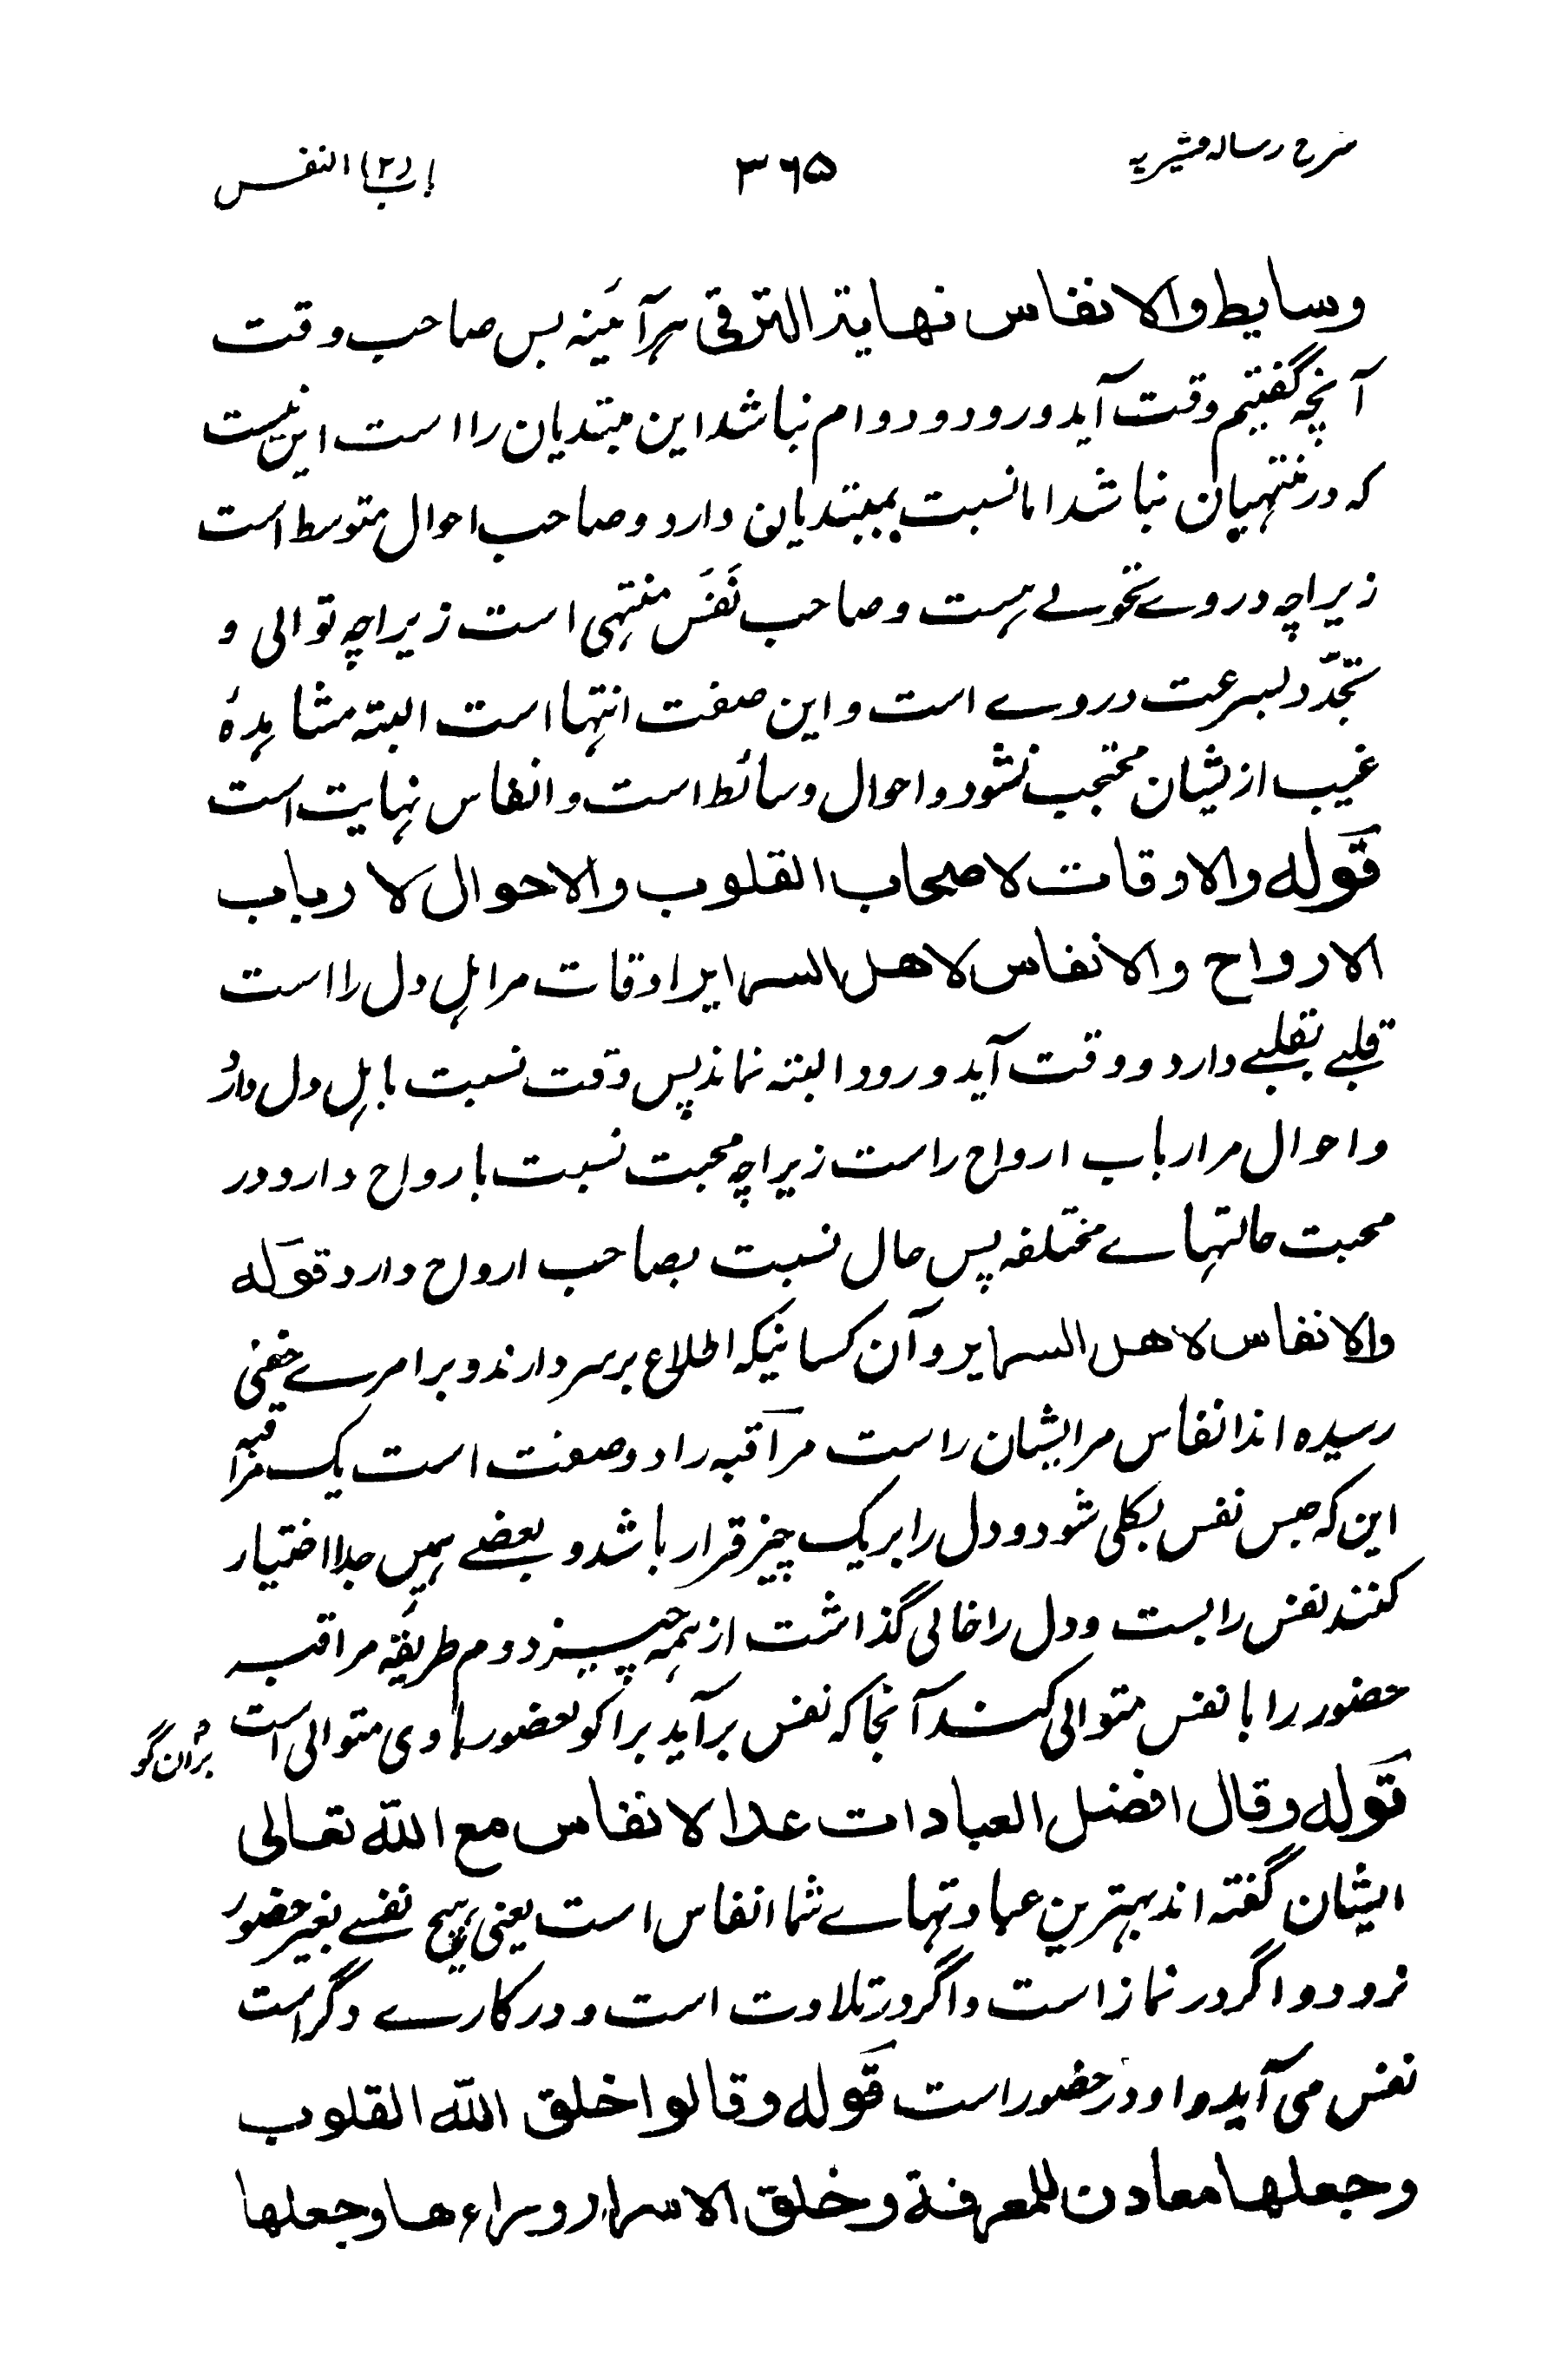 شرح رساله قشیریه
۳۶۵
باب (۲) النفس
وسایط والانفاس نهایة الترقی هرآئینه بس صاحب وقت
آنچه گفتیم وقت آید و رود و دوام نباشد این مبتدیان را است این نیست
که در منتهیان نباشد اما نسبت بمبتدیان دارد و صاحب احوال متوسط است
زیراچه در وے تحولے هست و صاحب نَفَس منتهی است زیراچه توالی و
تجدّد بسرعت در وے است و این صفت انتها است البته مشاهدۀ
غیب از یشان محتجب نشود و احوال وسائط است و انفاس نهایت است
قوله والاوقات لاصحاب القلوب والاحوال لارباب
الارواح والانفاس لاهل السرایر اوقات مر اهل دل را است
قلبے تقلبے دارد و وقت آید و رود البته نماند پس وقت نسبت باهل دل دارد
و احوال مر ارباب ارواح راست زیراچه محبت نسبت بارواح دارد و در
محبت حالتهاے مختلفه پس حال نسبت بصاحب ارواح دارد قوله
والانفاس لاهل السرایر و آن کسانیکه اطلاع بر سر دارند و بر امرے خفی
رسیده اند انفاس مر ایشان راست مراقبه را دو صفت است یک مراقبه
این که حبس نفس بکلی شود و دل را بر یک چیز قرار باشد و بعضے همیں جلا اختیار
کنند نفس را بست و دل را خالی گذاشت از همه چیز دوم طریقۀ مراقبه
حضور را با نفس متوالی کند آنجا که نفس برآید براکو بحضور ماوی متوالی است
قوله وقال افضل العبادات عد الانفاس مع الله تعالی
ایشان گفته اند بهترین عبادتهاے شما انفاس است یعنی هیچ نفسے بغیر حضور
نرود و اگر در نماز است و اگر در تلاوت است و در کارے دگر است
نفس می آید و او در حضور است قوله وقالوا خلق الله القلوب
وجعلها معادن للمعرفة وخلق الاسرار وراءها وجعلها